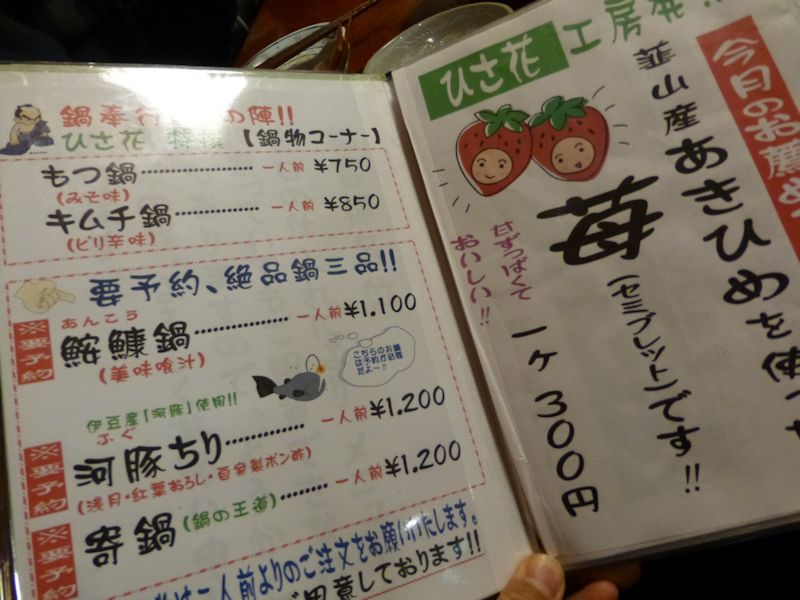 鍋奉行 の陣!!
ひさ花 特 【鍋物コーナー】
もつ鍋 一人前 ¥750
(みそ味)
キムチ鍋 一人前 ¥850
(ピリ辛味)
要予約、絶品鍋三品!!
※要予約
あんこう
鮟鱇鍋 一人前 ¥1.100
(美味喰汁)
こちらのお鍋
は予約が必要
だよー!!
伊豆産「河豚」使用!!
※要予約
ふぐ
河豚ちり 一人前 ¥1.200
(浅月・紅葉おろし・自家製ポン酢)
※要予約
寄鍋(鍋の王道) 一人前 ¥1.200
二人前よりのご注文をお願いいたします。
ご用意しております!!
ひさ花 工房発!!
今日のお薦め
韮山産あきひめを使って
苺(セミフレット)です!!
甘ずっぱくて
おいしい!!
一ケ 300円